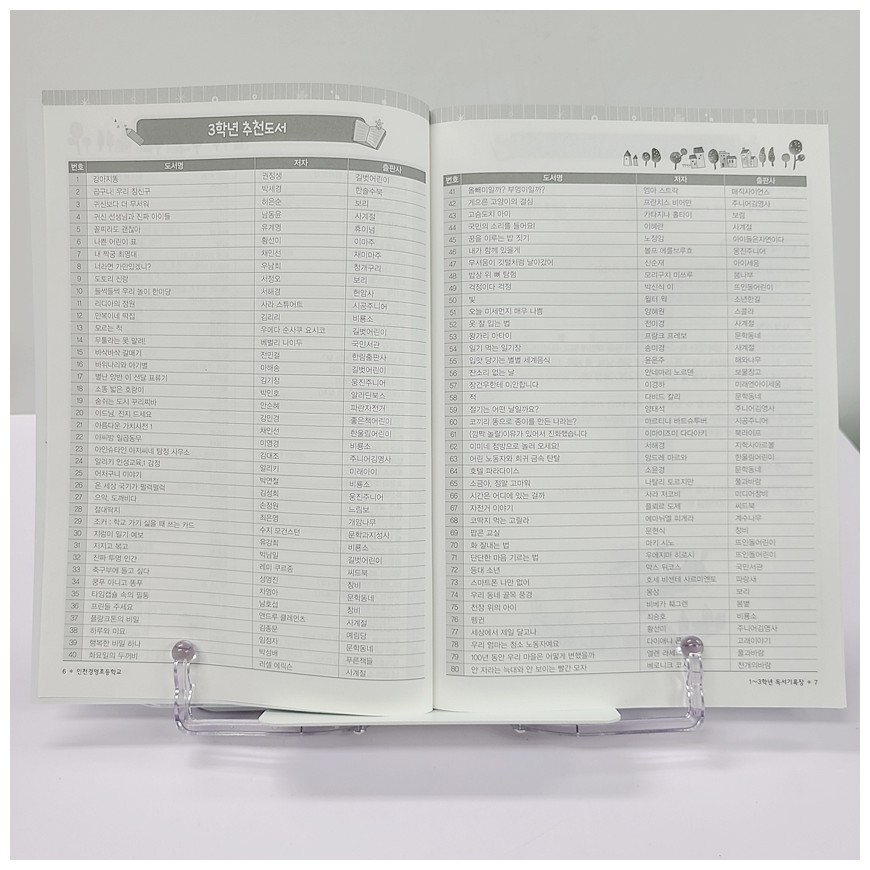 3학년 추천도서
번호 도서명 저자 출판사
1 강아지똥 권정생 길벗어린이
2 감구나! 우리 장신구 박세경 한솔수북
3 귀신보다 더 무서워 허은순 보리
4 귀신 선생님과 진짜 아이들 남동윤 사계절
5 꼴찌라도 괜찮아 유계영 휴이넘
6 나쁜 어린이 표 황선미 이마주
7 내 짝궁 최영대 채인선 재미마주
8 너라면 가만있겠니? 우남희 청개구리
9 도토리 신랑 서정오 보리
10 들썩들썩 우리 놀이 한마당 서해경 현암사
11 리디아의 정원 사라 스튜어트 시공주니어
12 만복이네 떡집 김리리 비룡소
13 모르는 척 우메다 순사쿠 요시코 길벗어린이
14 무툴라는 못 말려! 베벌리 나이두 국민서관
15 바삭바삭 갈매기 전민걸 한림출판사
16 바위나리와 아기별 마해송 길벗어린이
17 별난 양반 이 선달 표류기 김기정 웅진주니어
18 소똥 밟은 호랑이 박민호 알라딘북스
19 숨쉬는 도시 꾸리찌바 안순혜 파란자전거
20 아드님, 진지 드세요 강민경 좋은책어린이
21 아름다운 가치사전 1 채인선 한울림어린이
22 아씨방 일곱동무 이영경 비룡소
23 아인슈타인 아저씨네 탐정 사무소 김대조 주니어김영사
24 알리키 인성교육1 감정 알리키 미래아이
25 어처구니 이야기 박연철 비룡소
26 온 세상 국기가 펄럭펄럭 김성희 웅진주니어
27 으악, 도깨비다 손정원 느림보
28 절대딱지 최은영 개암나무
29 조커 : 학교 가기 싫을 때 쓰는 카드 수지 모건스턴 문학과지성사
30 지렁이 일기 예보 유강희 비룡소
31 지지고 볶고 박남일 길벗어린이
32 진짜 투명 인간 레미 쿠르종 씨드북
33 축구부에 들고 싶다 성명진 창비
34 쿵푸 아니고 똥푸 차영아 문학동네
35 타임캡슐 속의 필통 남호섭 창비
36 프린들 주세요 앤드루 클레먼츠 사계절
37 플랑크톤의 비밀 김종문 예림당
38 하루와 미요 임정자 문학동네
39 행복한 비밀 하나 박성배 푸른책들
40 화요일의 두꺼비 러셀 에릭슨 사계절
6 + 인천경명초등학교
번호 도서명 저자 출판사
41 올빼미일까? 부엉이일까? 엠마 스트락 매직사이언스
42 게으른 고양이의 결심 프란치스 비어만 주니어김영사
43 고슴도치 아이 카타지나 코토프스카 보림
44 국민의 소리를 들어요! 이해란 사계절
45 꿈을 이루는 밥 짓기 노정임 아이들은자연이다
46 내가 함께 있을게 볼프 에를브루흐 웅진주니어
47 무서움이 깃털처럼 날아갔어 신순재 아이세움
48 밥상 위 뼈 탐험 모리구치 미쓰루 봄나무
49 걱정이다 걱정 박신식 뜨인돌어린이
50 빛 월터 윅 소년한길
51 오늘 미세먼지 매우 나쁨 양혜원 스콜라
52 옷 잘 입는 법 전미경 사계절
53 왕가리 마타이 프랑크 프레보 문학동네
54 일기 먹는 일기장 송미경 사계절
55 입맛 당기는 별별 세계음식 윤은주 해와나무
56 잔소리 없는 날 안네마리 노르덴 보물창고
57 장건우한테 미안합니다 이경화 미래엔아이세움
58 적 다비드 칼리 문학동네
59 절기는 어떤 날일까요? 양태석 주니어김영사
60 코끼리 똥으로 종이를 만든 나라는? 마르티나 바트슈투버 시공주니어
61 (깜짝 놀랄)이유가 있어서 진화했습니다 이마이즈미 다다아키 북라이프
62 미미네 정방으로 놀러 오세요! 서해경 지학사아르볼
63 어린 노동자와 희귀 금속 탄탈 앙드레 마르와 한울림어린이
64 호텔 파라다이스 소윤경 문학동네
65 소금아, 정말 고마워 나탈리 토르지만 풀과바람
66 시간은 어디에 있는 걸까 사라 저코비 미디어창비
67 자전거 이야기 플뢰르 도제 씨드북
68 코딱지 먹는 고릴라 에마뉘엘 피게라 계수나무
69 맘콘 교실 문현식 창비
70 화 잘내는 법 마키 시노 뜨인돌어린이
71 단단한 마음 기르는 법 우에지마 히로시 뜨인돌어린이
72 등대 소년 막스 뒤코스 국민서관
73 스마트폰 나만 없어 호세 비센테 사르미엔토 파랑새
74 우리 동네 골목 풍경 몽상 보리
75 천장 위의 아이 비베카 훼그렌 봄볕
76 펭귄 최승호 비룡소
77 세상에서 제일 달고나 황선미 주니어김영사
78 우리 엄마는 청소 노동자예요 다이애나 고래이야기
79 100년 동안 우리 마을은 어떻게 변했을까 엘렌 라세 풀과바람
80 안 자라는 늑대와 안 보이는 빨간 모자 베로니크 코 천개의바람
1~3학년 독서기록장 + 7